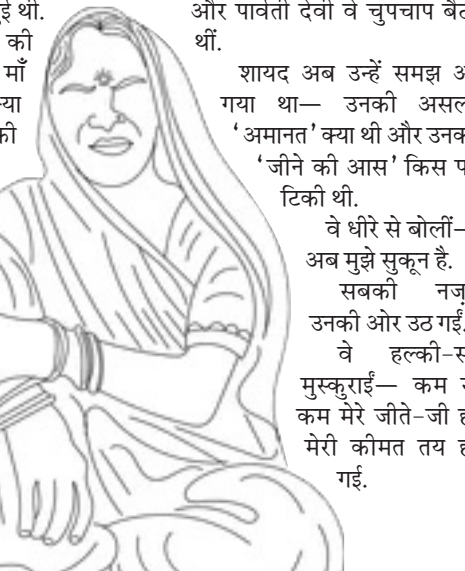 ई थी.
की
माँ
की
और पार्वती देवी वे चुपचाप
थीं.
शायद अब उन्हें समझ
गया था— उनकी
'अमानत' क्या थी और
'जीने की आस' किस
टिकी थी.
वे धीरे से बोलीं—
अब मुझे सुकून है.
सबकी
उनकी ओर उठ गईं.
वे
मुस्कुराईं— कम
कम मेरे जीते-जी
मेरी कीमत तय
गई.